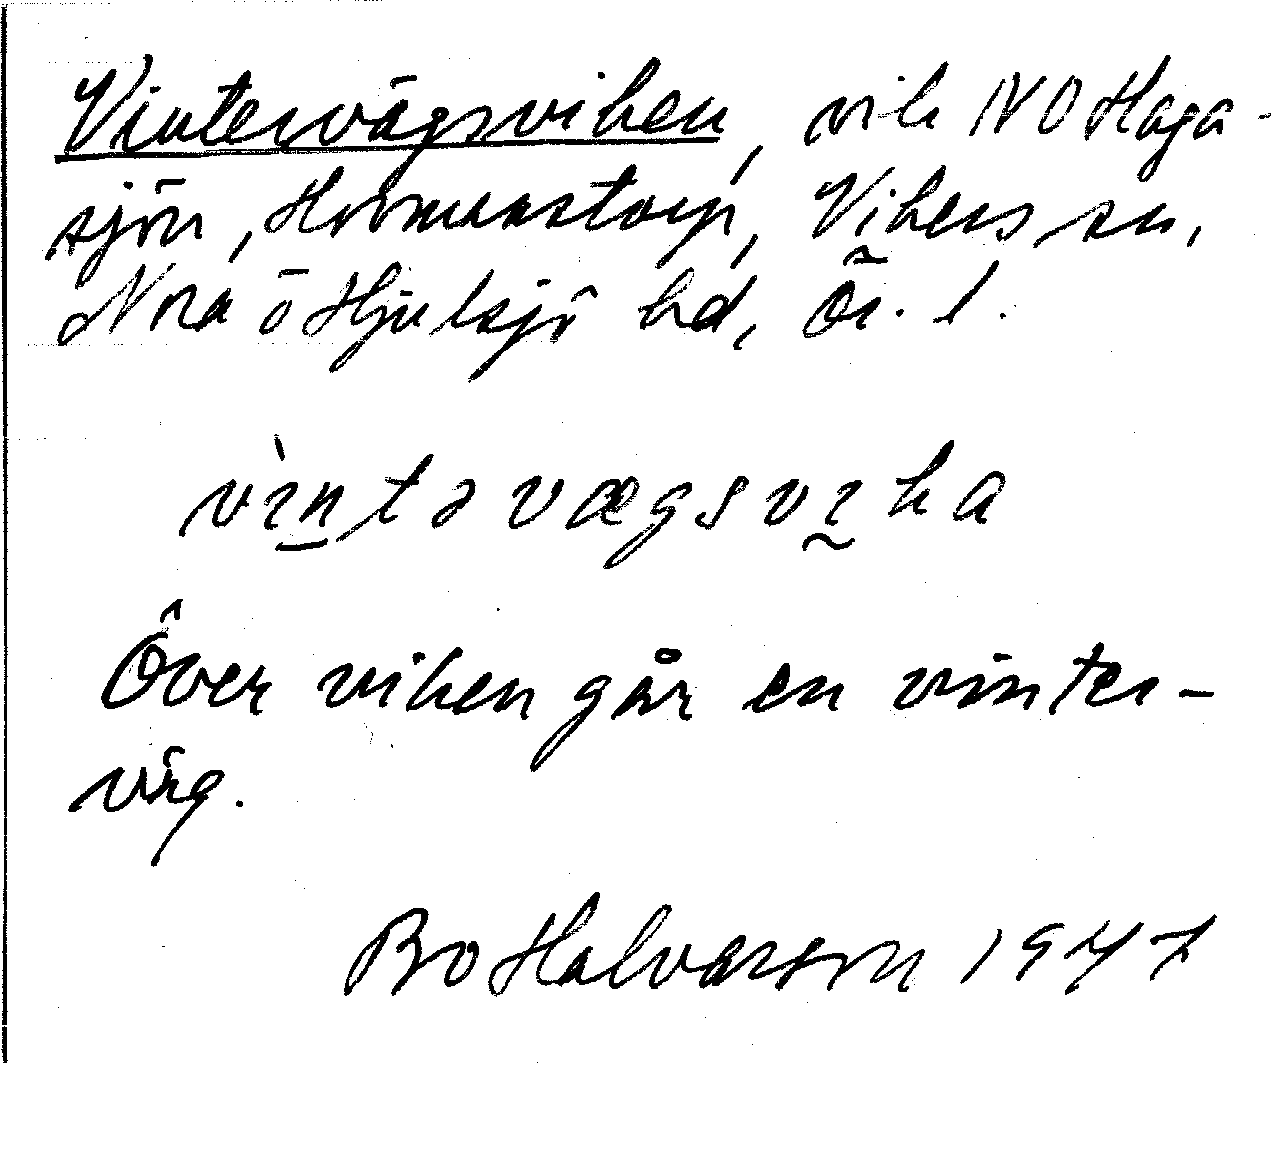 Vintervägsviken, vik NO Haga-
sjön, Hammarstorp, Vikers sn,
Nora o Hjulsjö bd, Ör. l.
vìntəvægsvika
Över viken går en vinter-
väg.
Bo Halvarson 1947